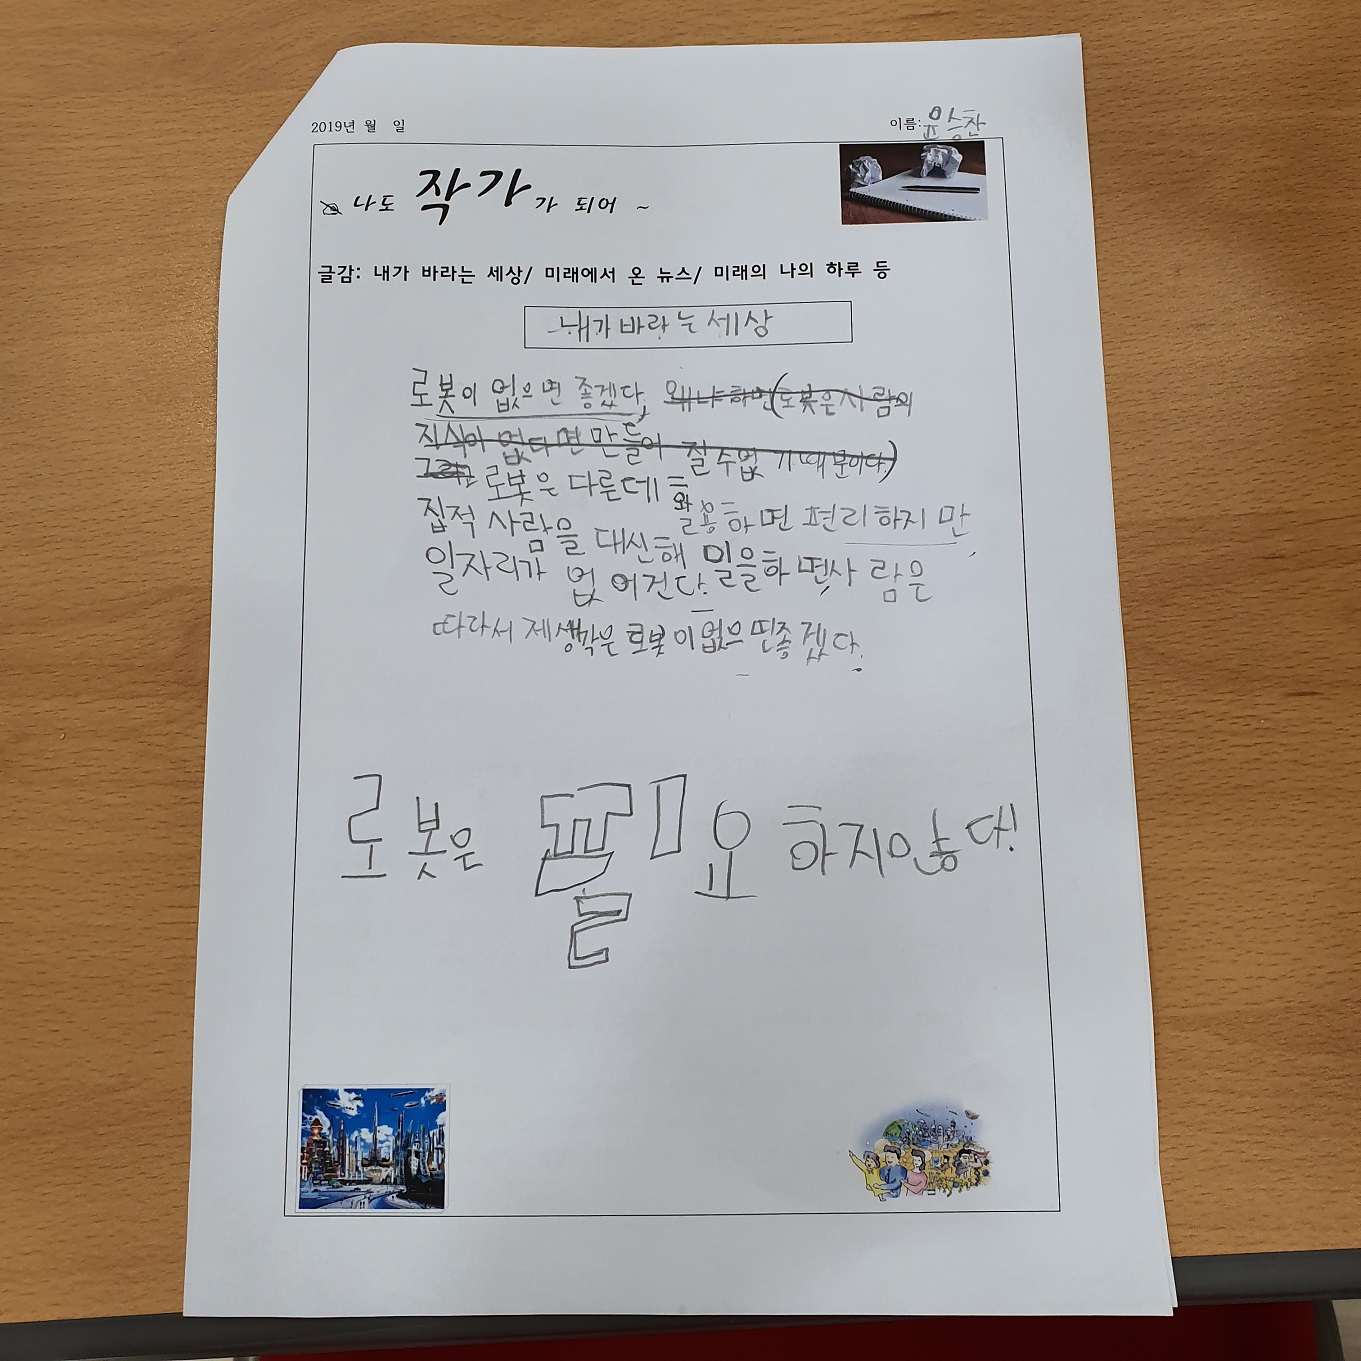 2019년 월 일
이름: 윤승찬
나도 작가가 되어 ~
글감: 내가 바라는 세상/ 미래에서 온 뉴스/ 미래의 나의 하루 등
내가 바라는 세상
로봇이 없으면 좋겠다, 왜냐하면(로봇은 사람의
지식이 없다면 만들어 질 수 없기 때문이다.)
로봇은 다른데
활용하면 편리하지만,
직접 사람을 대신해 일을하면, 사람은
일자리가 없어진다.
따라서 제생각은 로봇이 없으면좋겠다.
로봇은 필요하지않다!